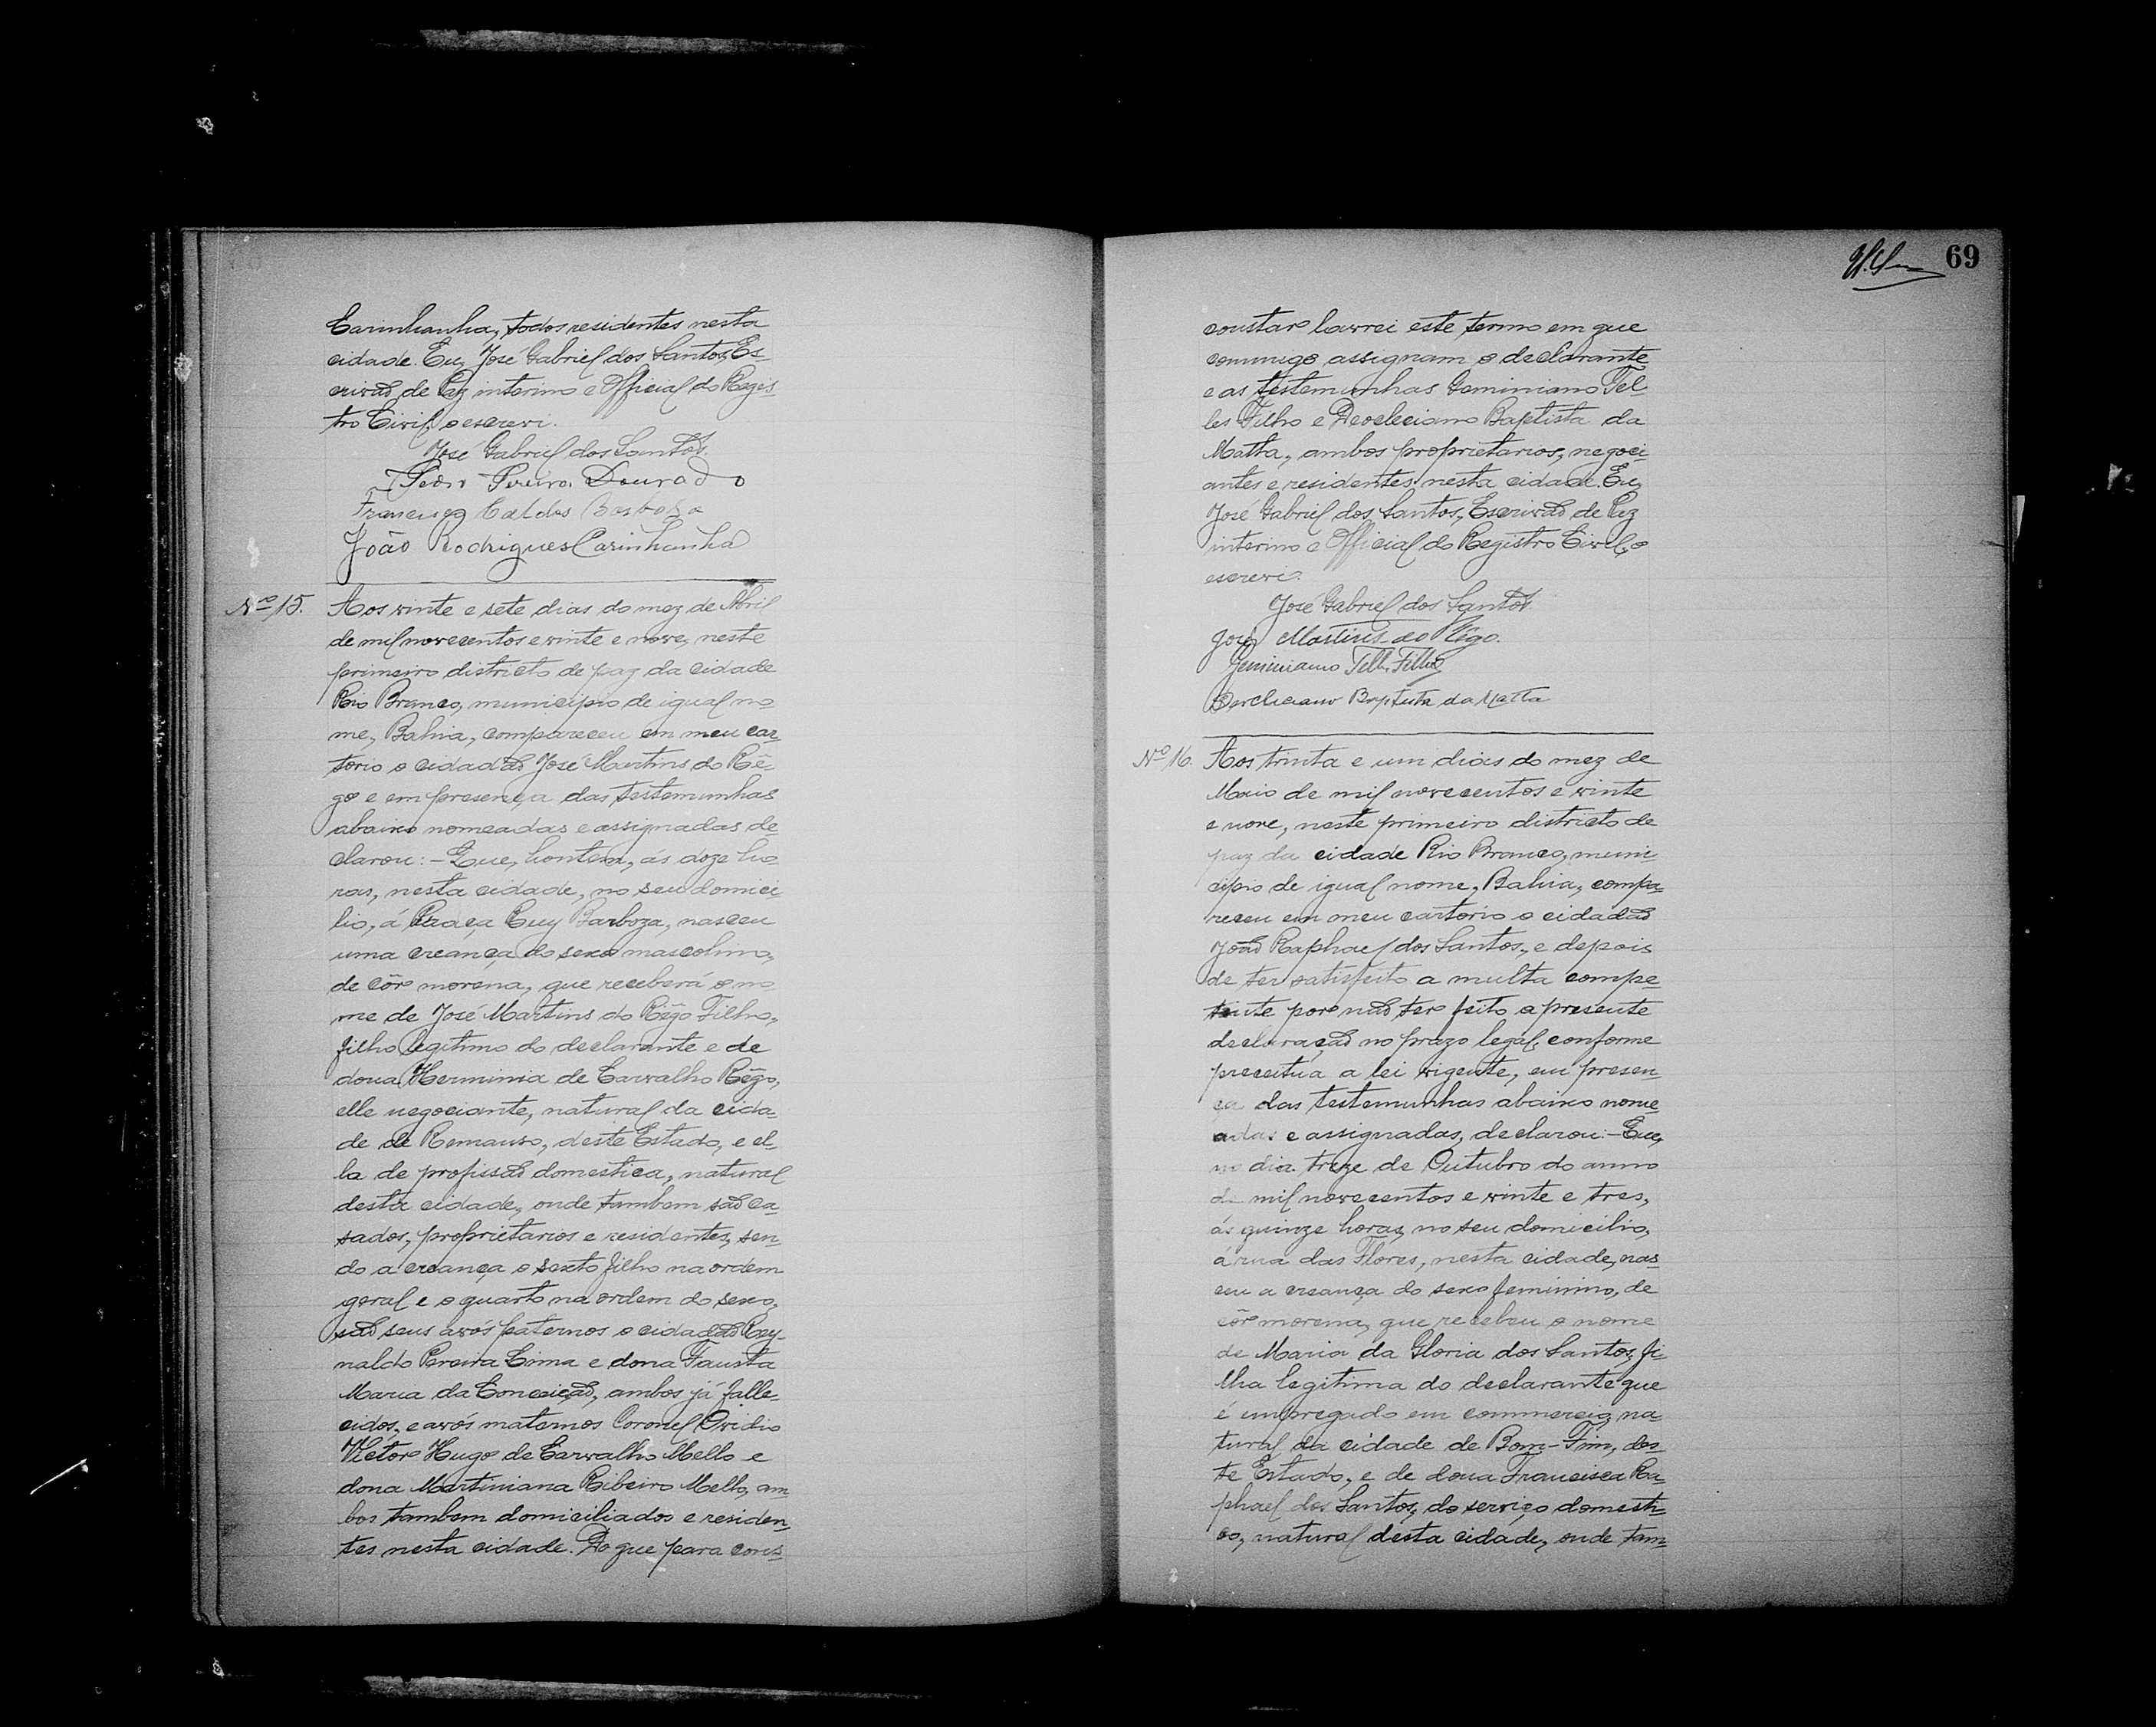 Carinhanha, todos residentes nesta
cidade. Eu, José Gabriel dos Santos, Es-
crivão de Paz interino e Official do Regis-
tro Civil, o escrevi.
José Gabriel dos Santos.
Pedro Pereira Dourado
Francisco Caldas Barboza
João Rodrigues Carinhanha
Nº 15. Aos vinte e sete dias do mez de Abril
de mil novecentos e vinte e nove, neste
primeiro districto de paz da cidade
Rio Branco, municipio de igual no-
me, Bahia, compareceu em meu car-
torio o cidadão José Martins do Rê-
go e em presença das testemunhas
abaixo nomeadas e assignadas de-
clarou:- Que, hontem, ás doze ho-
ras, nesta cidade, no seu domici-
lio, á Praça Ruy Barboza, nasceu
uma creança do sexo mascolino,
de côr morena, que receberá o no-
me de José Martins do Rêgo Filho,
filho legitimo do declarante e de
dona Herminia de Carvalho Rêgo,
elle negociante, natural da cida-
de de Remanso, deste Estado, e el-
la de profissão domestica, natural
desta cidade, onde tambem são ca-
sados, proprietarios e residentes, sen-
do a creança o sexto filho na ordem
geral e o quarto na ordem do sexo,
são seus avós paternos o cidadão Rey-
naldo Pereira Lima e dona Fausta
Maria da Conceição, ambos já falle-
cidos, e avós maternos Coronel Ovidio
Victor Hugo de Carvalho Mello e
dona Martiniana Ribeiro Mello, am-
bos tambem domiciliados e residen-
tes nesta cidade. Do que para cons-
69
constar lavrei este termo em que
commigo assignam o declarante
e as testemunhas Geminiano Tel-
les Filho e Deocleciano Baptista da
Matta, ambos proprietarios, negoci-
antes e residentes nesta cidade. Eu,
José Gabriel dos Santos, Escrivão de Paz
interino e Official do Registro Civil, o
escrevi.
José Gabriel dos Santos.
José Martins do Rêgo.
Geminiano Telles Filho
Deocleciano Baptista da Matta
Nº 16. Aos trinta e um dias do mez de
Maio de mil novecentos e vinte
e nove, neste primeiro districto de
paz da cidade Rio Branco, muni-
cipio de igual nome, Bahia, compa-
receu em meu cartorio o cidadão
João Raphael dos Santos, e depois
de ter satisfeito a multa compe-
tente por não ter feito a presente
declaração no prazo legal, conforme
preceitúa a lei vigente, em presen-
ça das testemunhas abaixo nome-
adas e assignadas, declarou:- Que,
no dia treze de Outubro do anno
de mil novecentos e vinte e tres,
ás quinze horas, no seu domicilio,
á rua das Flores, nesta cidade, nas-
ceu a creança do sexo feminino, de
côr morena, que recebeu o nome
de Maria da Gloria dos Santos, fi-
lha legitima do declarante que
é empregado em commercio, na-
tural da cidade de Bom-Fim, des-
te Estado, e de dona Francisca Ra-
phael dos Santos, do serviço domesti-
co, natural desta cidade, onde tam-